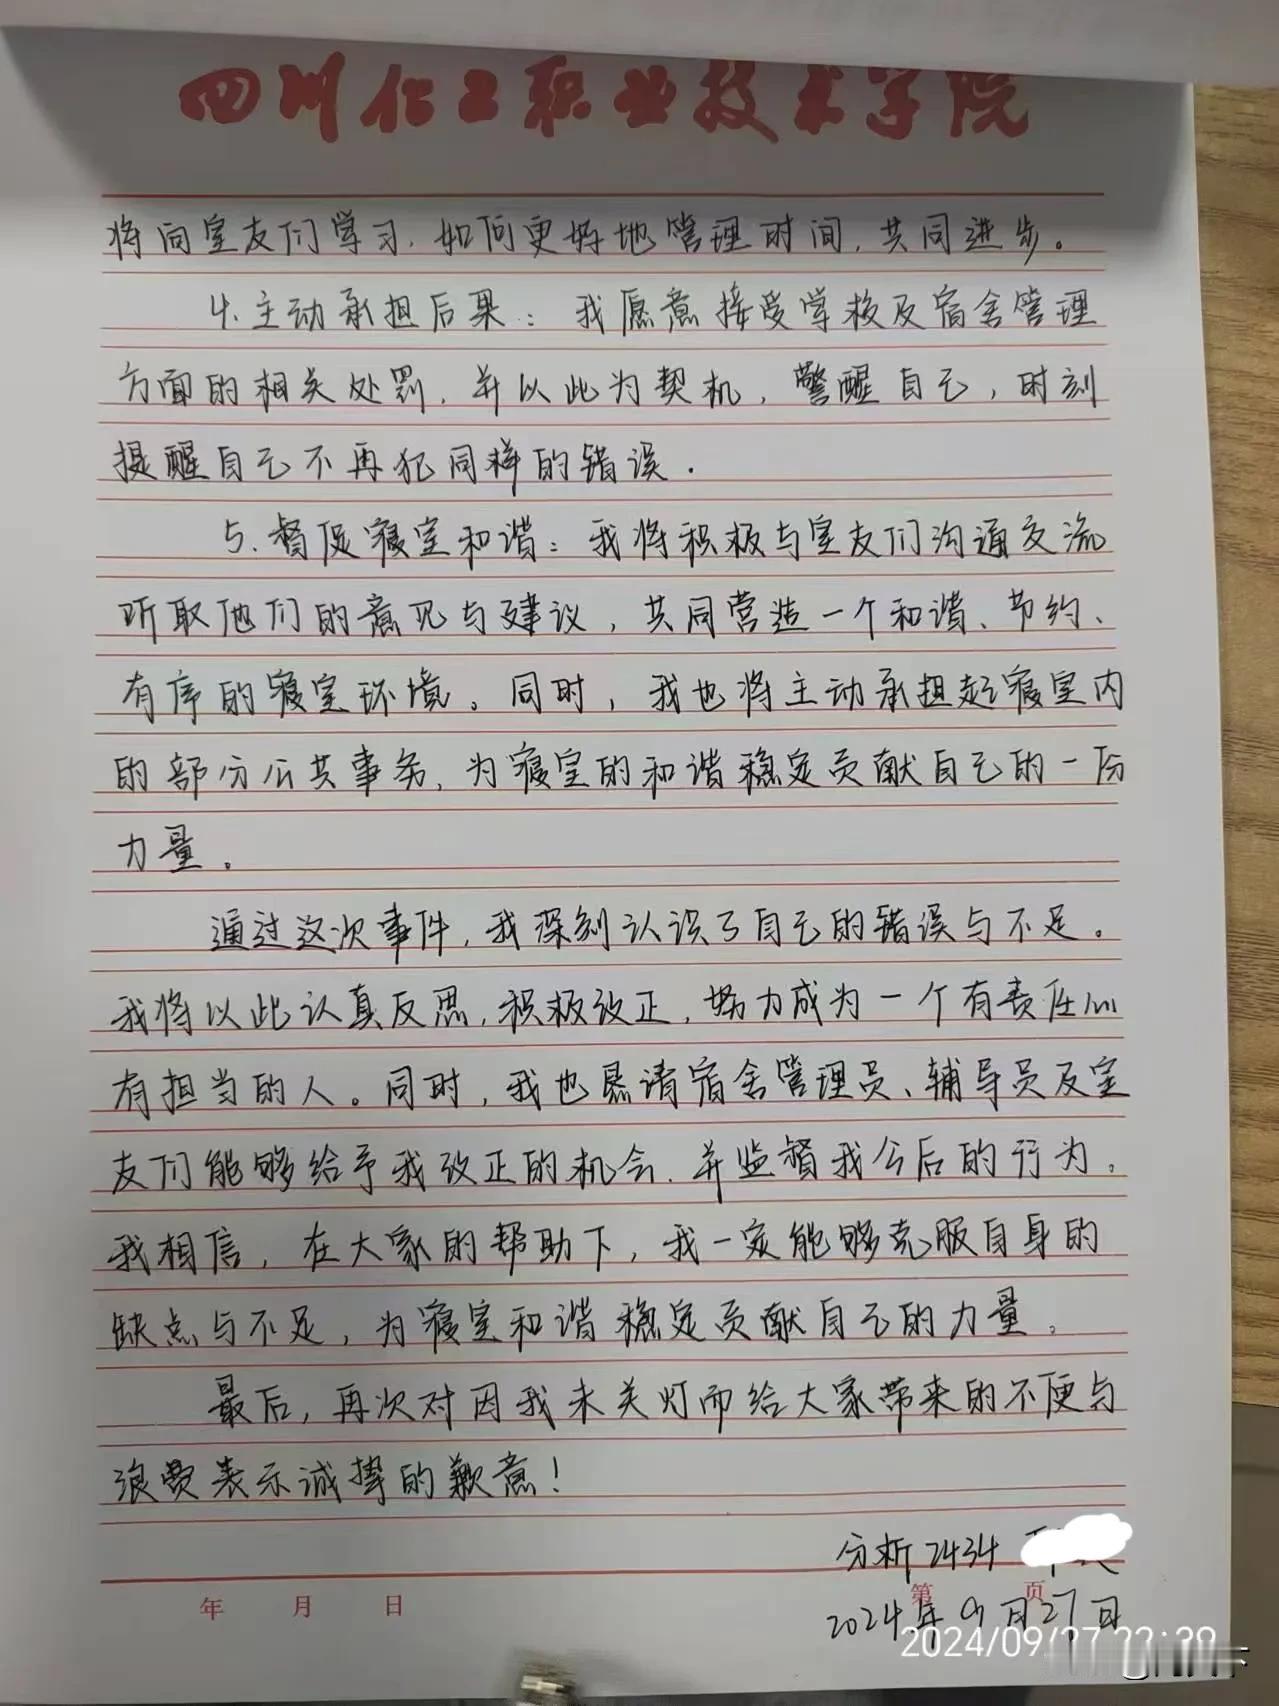 四川化工职业技术学院
将向室友们学习，如何更好地管理时间，共同进步。
4.主动承担后果：我愿意接受学校及宿舍管理
方面的相关处罚，并以此为契机，警醒自己，时刻
提醒自己不再犯同样的错误.
5.督促寝室和谐：我将积极与室友们沟通交流
听取他们的意见与建议，共同营造一个和谐、节约、
有序的寝室环境。同时，我也将主动承担起寝室内
的部分公共事务，为寝室的和谐稳定贡献自己的一份
力量。
通过这次事件，我深刻认识了自己的错误与不足。
我将以此认真反思，积极改正，努力成为一个有责任心
有担当的人。同时，我也恳请宿舍管理员、辅导员及室
友们能够给予我改正的机会，并监督我今后的行为。
我相信，在大家的帮助下，我一定能够克服自身的
缺点与不足，为寝室和谐稳定贡献自己的力量。
最后，再次对因我未关灯而给大家带来的不便与
浪费表示诚挚的歉意！
分析2434
年 月 日 第 页
2024年9月27日
2024/09/27 22:39